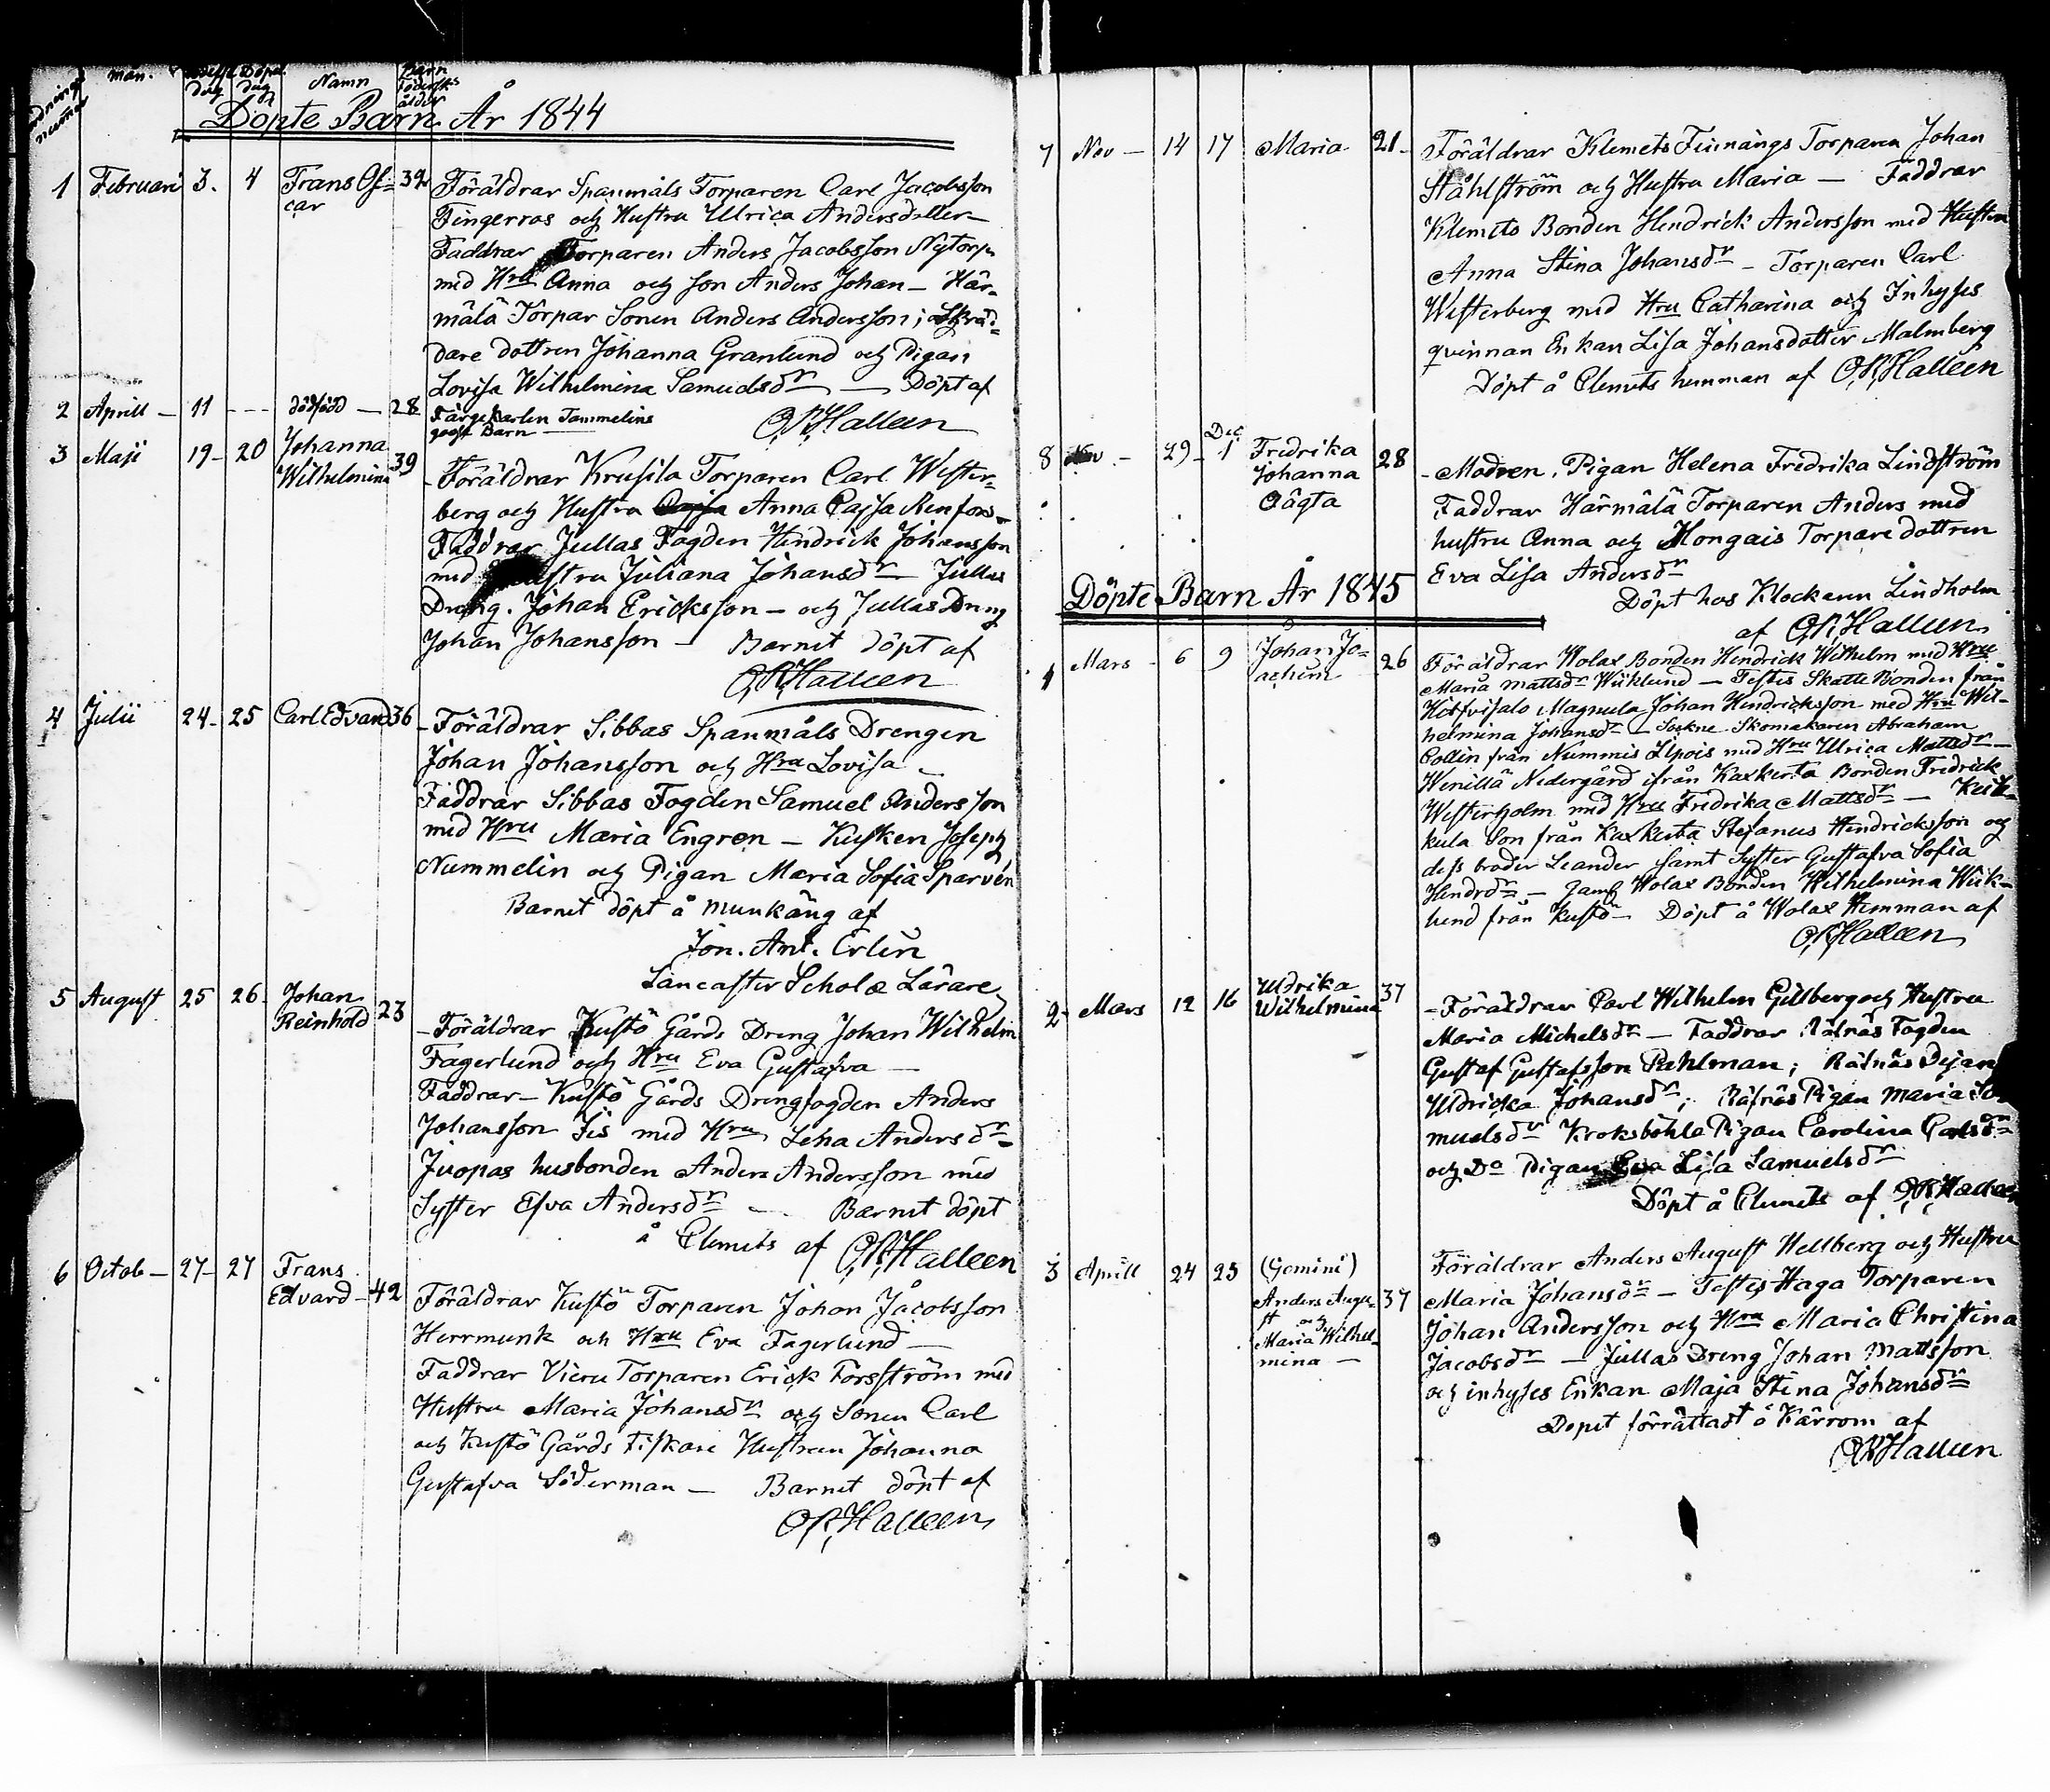 mån. dag Döpe dag Namn ålder
Döpte Barn År 1844
1 Februari 3. 4 Frans Os=car 32 Föräldrar Spanmåls Torparen Carl Jacobsson
Fingerroos och Hustru Ulrica Andersdotter
Faddrar Torparen Anders Jacobsson Nytorp
med Hru Anna och son Anders Johan — Här-
mälä Torpar Sonen Anders Andersson; Skräd-
dare dottren Johanna Granlund och Pigan
Lovisa Wilhelmina Samuelsdr — Döpt af
2 Aprill — 11 - - - dödfödd — 28 Färgekarlen Tammelins
Barn — O.R. Halleen
3 Maji 19 - 20 Johanna Wilhelmina 39
Föräldrar Kreusila Torparen Carl Wester-
berg och Hustru Cajsa Anna Cajsa Renfors
Faddrar Jullas Fogden Hindrick Johansson
med Hustru Juliana Johansdr — Jullas
Dräng. Johan Ericksson — och Jullas Dräng
Johan Johansson — Barnet döpt af
O.R. Halleen
4 Julii 24 - 25 Carl Edvard 36 - Föräldrar Sibbas Spanmåls Drengen
Johan Johansson och Hru Lovisa —
Faddrar Sibbas Fogden Samuel Andersson
med Hru Maria Engren — Kusken Joseph
Nummelin och Pigan Maria Sofia Sparvén
Barnet döpt å Munkäng af
Jon. Ant. Erlin
Lancaster Schola Lärare
5 August 25 26 - Johan Reinhold 23
- Föräldrar Kustö Gårds Dreng Johan Wilhelm
Fagerlund och Hru Eva Gustafva —
Faddrar — Kustö Gårds Drengfogden Anders
Johansson Fis med Hru Lena Andersdr —
Juopas husbonden Anders Andersson med
Syster Efva Andersdr — Barnet döpt
å Clemets af O.R. Halleen
6 Octob — 27 - 27 Frans Edvard - 42
Föräldrar Kustö Torparen Johan Jacobsson
Herrmunk och Hru Eva Fagerlund —
Faddrar Vieru Torparen Erick Forsström med
Hustru Maria Johansdr och Sonen Carl
och Kustö Gårds Fiskare Hustrun Johanna
Gustafva Söderman — Barnet döpt af
O.R. Halleen
7 Nov — 14 17 Maria 21 - Föräldrar Klemets Finnängs Torparen Johan
Ståhlström och Hustru Maria — Faddrar
Klemets Bonden Hendrick Andersson med Hustru
Anna Stina Johansdr — Torparen Carl
Westerberg med Hru Catharina och Inhyses
qvinnan Enkan Lisa Johansdotter Malmberg
Döpt å Clemets hemman af O.R. Halleen
8 Nov — 29 - Dec 1 Fredrika Johanna Aagta 28
- Modren, Pigan Helena Fredrika Lindström
Faddrar Härmälä Torparen Anders med
hustru Anna och Mongais Torpare dottren
Eva Lisa Andersdr
Döpt hos Klockaren Lindholm
af O.R. Halleen
Döpte Barn År 1845
1 Mars - 6 9 Johan Jo=achim 26 Föräldrar Wolax Bonden Hendrick Wilhelm med Hru
Maria Mattsdr Wiklund — Testes Skatte Bonden från
Magnula Johan Hendricksson med Hru Wil-
helmina Johansdr — Sockne Skomakaren Abraham
Collin från Nummis Ilpois med Hru Ulrica Mattsdr —
Wenillä Nedergård ifrån Kaxkerta Bonden Fredrick
Westerholm med Hru Fredrika Mattsdr —
kula Son från Kaxkerta Stefanus Hendricksson och
dess broder Leander samt Syster Gustafva Sofia
Hendrdr — Wolax Bonden Wilhelmina Wik-
lund från Kustö — Döpt å Wolax Hemman af
O.R. Halleen
2 - Mars 12 16 Uldrika Wilhelmina 37
- Föräldrar Carl Wilhelm Gillberg och Hustru
Maria Michelsdr — Faddrar Räfnäs Fogden
Gustaf Gustafsson Pahlman; Räfnäs Pigan
Uldricka Johansdr; Räfnäs Pigan Maria Sa-
muelsdr Kroksböhle Pigan Carolina Carlsdr
och Do Pigan Eva Lisa Samuelsdr
Döpt å Clemets af O.R. Halleen
3 Aprill 24 25 (Gemini) Anders August och Maria Wilhelmina — 37
Föräldrar Anders August Hellberg och Hustru
Maria Johansdr — Testes Haga Torparen
Johan Andersson och Hru Maria Christina
Jacobsdr — Jullas Dreng Johan Mattsson
och inhyses Enkan Maja Stina Johansdr
Dopet förrättadt å Kärrom af
O.R. Halleen